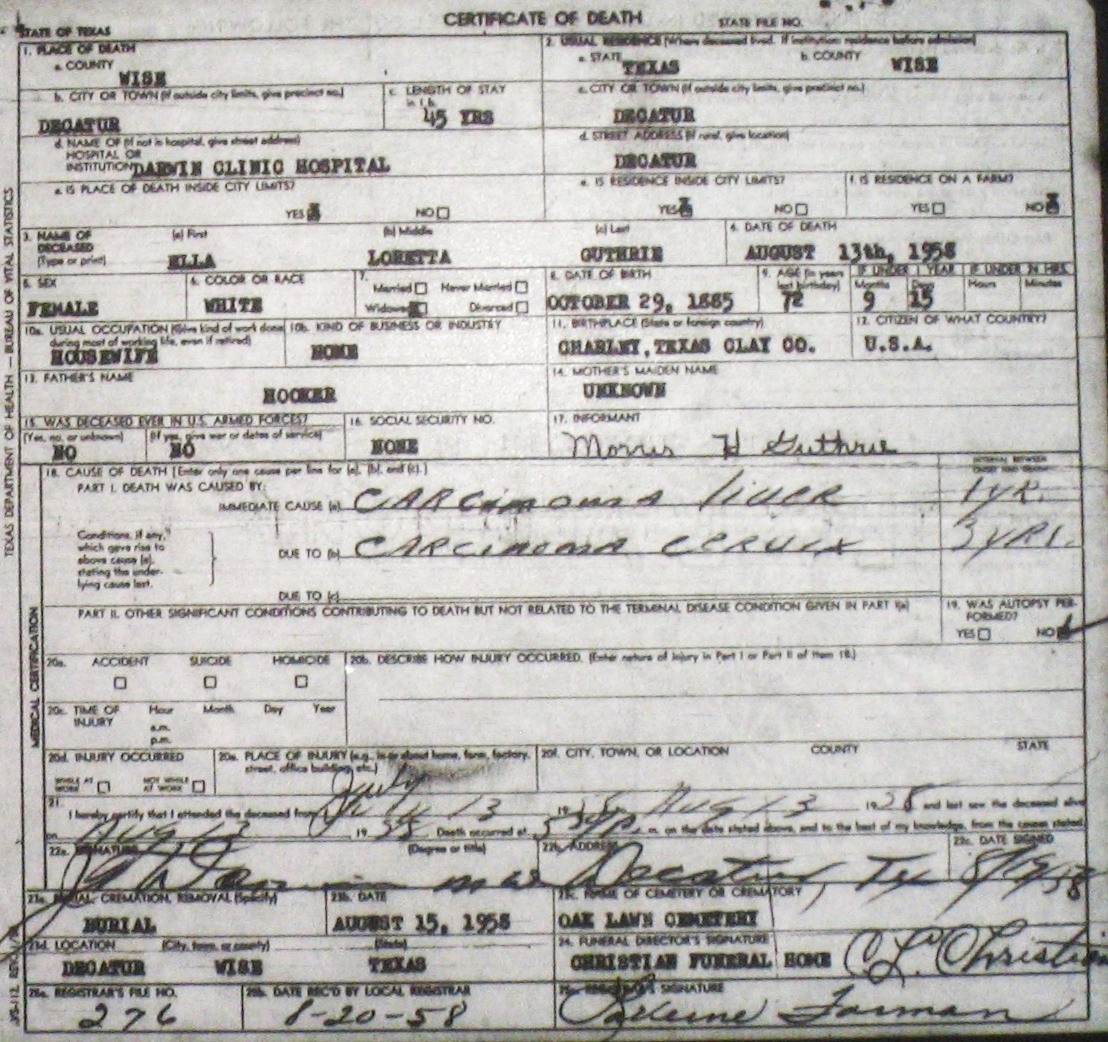 CERTIFICATE OF DEATH
STATE OF TEXAS
STATE FILE NO.
1. PLACE OF DEATH
a. COUNTY
WISE
2. USUAL RESIDENCE (Where deceased lived. If institution: residence before admission)
a. STATE TEXAS
b. COUNTY WISE
b. CITY OR TOWN (If outside city limits, give precinct no.)
DECATUR
c. LENGTH OF STAY
in 1 b.
45 YRS
c. CITY OR TOWN (If outside city limits, give precinct no.)
DECATUR
d. NAME OF (If not in hospital, give street address)
HOSPITAL OR
INSTITUTION DARWIN CLINIC HOSPITAL
d. STREET ADDRESS (If rural, give location)
DECATUR
e. IS PLACE OF DEATH INSIDE CITY LIMITS?
YES NO
e. IS RESIDENCE INSIDE CITY LIMITS?
YES NO
f. IS RESIDENCE ON A FARM?
YES NO
3. NAME OF
DECEASED
(Type or print)
(a) First
ELLA
(b) Middle
LORETTA
(c) Last
GUTHRIE
4. DATE OF DEATH
AUGUST 13th, 1958
5. SEX
FEMALE
6. COLOR OR RACE
WHITE
7.
Married Never Married
Widowed Divorced
8. DATE OF BIRTH
OCTOBER 29, 1885
9. AGE (In years
last birthday)
72
IF UNDER 1 YEAR
Months Days
9 15
IF UNDER 24 HRS.
Hours Minutes
10a. USUAL OCCUPATION (Give kind of work done
during most of working life, even if retired)
HOUSEWIFE
10b. KIND OF BUSINESS OR INDUSTRY
HOME
11. BIRTHPLACE (State or foreign country)
CHARLEY, TEXAS CLAY CO.
12. CITIZEN OF WHAT COUNTRY?
U.S.A.
13. FATHER'S NAME
HOOKER
14. MOTHER'S MAIDEN NAME
UNKNOWN
15. WAS DECEASED EVER IN U.S. ARMED FORCES?
(Yes, no, or unknown)
NO
(If yes, give war or dates of service)
NO
16. SOCIAL SECURITY NO.
NONE
17. INFORMANT
Morris H Guthrie
18. CAUSE OF DEATH [Enter only one cause per line for (a), (b), and (c).]
INTERVAL BETWEEN
ONSET AND DEATH
PART I. DEATH WAS CAUSED BY:
IMMEDIATE CAUSE (a) CARCINOMA LIVER 1 YR.
Conditions, if any,
which gave rise to
above cause (a),
stating the under-
lying cause last.
DUE TO (b) CARCINOMA CERVIX 3 YRS.
DUE TO (c)
PART II. OTHER SIGNIFICANT CONDITIONS CONTRIBUTING TO DEATH BUT NOT RELATED TO THE TERMINAL DISEASE CONDITION GIVEN IN PART I(a)
19. WAS AUTOPSY PER-
FORMED?
YES NO
20a. ACCIDENT SUICIDE HOMICIDE
20b. DESCRIBE HOW INJURY OCCURRED. (Enter nature of injury in Part I or Part II of Item 18.)
20c. TIME OF
INJURY
Hour Month Day Year
a.m.
p.m.
20d. INJURY OCCURRED
WHILE AT
WORK
NOT WHILE
AT WORK
20e. PLACE OF INJURY (e.g., in or about home, farm, factory,
street, office building, etc.)
20f. CITY, TOWN, OR LOCATION COUNTY STATE
July
21.
I hereby certify that I attended the deceased from July 13 1958 Aug 13 1958 and last saw the deceased alive
on Aug 13, 1958 Death occurred at m. on the date stated above, and to the best of my knowledge, from the causes stated.
22a. SIGNATURE (Degree or title)
22b. ADDRESS
Decatur, Tex
22c. DATE SIGNED
23a. BURIAL, CREMATION, REMOVAL (Specify)
BURIAL
23b. DATE
AUGUST 15, 1958
23c. NAME OF CEMETERY OR CREMATORY
OAK LAWN CEMETERY
23d. LOCATION (City, town, or county) (State)
DECATUR WISE TEXAS
24. FUNERAL DIRECTOR'S SIGNATURE
CHRISTIAN FUNERAL HOME C L Christian
25a. REGISTRAR'S FILE NO.
276
25b. DATE REC'D BY LOCAL REGISTRAR
8-20-58
25c. REGISTRAR'S SIGNATURE
TEXAS DEPARTMENT OF HEALTH — BUREAU OF VITAL STATISTICS
MEDICAL CERTIFICATION